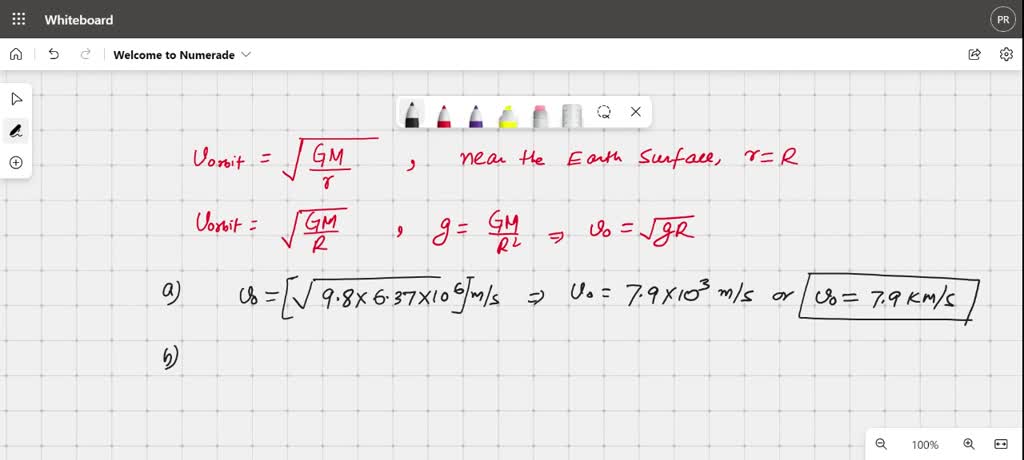 Whiteboard
PR
Welcome to Numerade
v_orbit = √(GM/r) , near the Earth Surface, r = R
v_orbit = √(GM/R) , g = GM/R² ⇒ v₀ = √gR
a) v₀ = [√9.8×6.37×10⁶] m/s ⇒ v₀ = 7.9×10³ m/s or v₀ = 7.9 KM/s
b)
100%